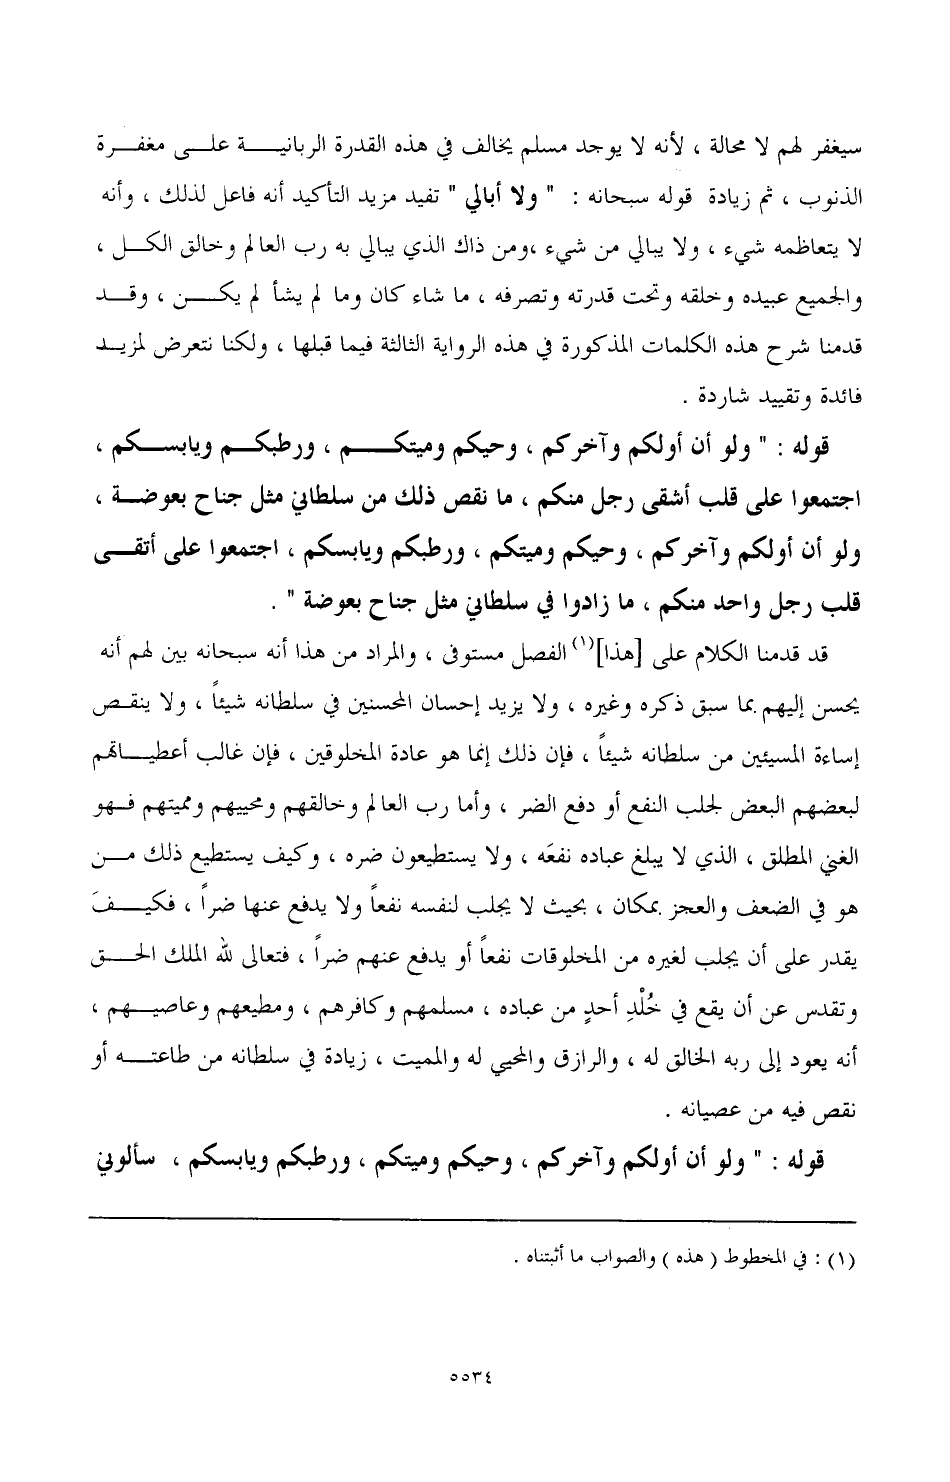 سيغفر لهم لا محالة ، لأنه لا يوجد مسلم يخالف في هذه القدرة الربانيـــة علـــى مغفـــرة
الذنوب ، ثم زيادة قوله سبحانه : " ولا أبالي " تفيد مزيد التأكيد أنه فاعل لذلك ، وأنه
لا يتعاظمه شيء ، ولا يبالي من شيء ،ومن ذاك الذي يبالي به رب العالم وخالق الكـــل ،
والجميع عبيده وخلقه وتحت قدرته وتصرفه ، ما شاء كان وما لم يشأ لم يكـــن ، وقـــد
قدمنا شرح هذه الكلمات المذكورة في هذه الرواية الثالثة فيما قبلها ، ولكنا نتعرض لمزيـــد
فائدة وتقييد شاردة .
قوله : " ولو أن أولكم وآخركم ، وحيكم وميتكـــم ، ورطبكـــم ويابســـكم ،
اجتمعوا على قلب أشقى رجل منكم ، ما نقص ذلك من سلطاني مثل جناح بعوضـــة ،
ولو أن أولكم وآخركم ، وحيكم وميتكم ، ورطبكم ويابسكم ، اجتمعوا على أتقـــى
قلب رجل واحد منكم ، ما زادوا في سلطاني مثل جناح بعوضة " .
قد قدمنا الكلام على [هذا](١) الفصل مستوفى ، والمراد من هذا أنه سبحانه بين لهم أنه
يحسن إليهم بما سبق ذكره وغيره ، ولا يزيد إحسان المحسنين في سلطانه شيئاً ، ولا ينقـــص
إساءة المسيئين من سلطانه شيئاً ، فإن ذلك إنما هو عادة المخلوقين ، فإن غالب أعطيـــاتهم
لبعضهم البعض لجلب النفع أو دفع الضر ، وأما رب العالم وخالقهم ومحييهم ومميتهم فـــهو
الغني المطلق ، الذي لا يبلغ عباده نفعَه ، ولا يستطيعون ضره ، وكيف يستطيع ذلك مـــن
هو في الضعف والعجز بمكان ، بحيث لا يجلب لنفسه نفعاً ولا يدفع عنها ضراً ، فكيـــفَ
يقدر على أن يجلب لغيره من المخلوقات نفعاً أو يدفع عنهم ضراً ، فتعالى لله الملك الحـــق
وتقدس عن أن يقع في خُلْدِ أحدٍ من عباده ، مسلمهم وكافرهم ، ومطيعهم وعاصيـــهم ،
أنه يعود إلى ربه الخالق له ، والرازق والمحيي له والمميت ، زيادة في سلطانه من طاعتـــه أو
نقص فيه من عصيانه .
قوله : " ولو أن أولكم وآخركم ، وحيكم وميتكم ، ورطبكم ويابسكم ، سألوني
(١) : في المخطوط ( هذه ) والصواب ما أثبتناه .
٥٥٣٤